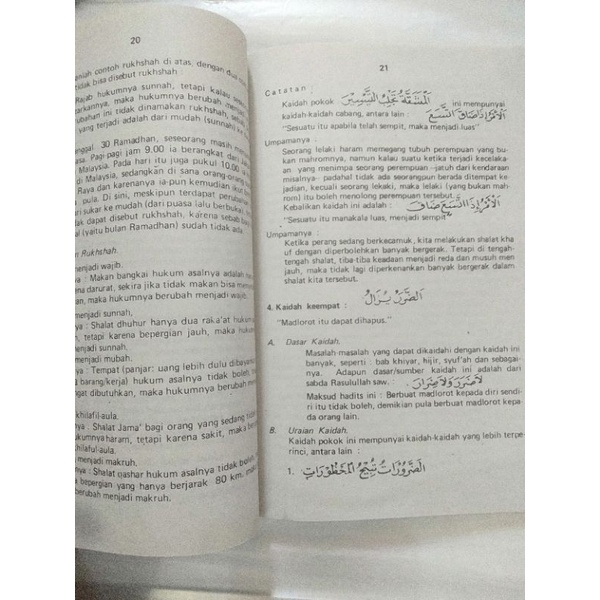 20
niah contoh rukhshah di atas, dengan dua
tidak bisa disebut rukhshah :
Rajab hukumnya sunnah, tetapi kalau
maka hukumnya berubah
ubahan ini tidak dinamakan rukhshah,
yang terjadi adalah dari mudah (sunnah) ke
nggal 30 Ramadhan, seseorang masih
asa. Pagi-pagi jam 9.00 ia berangkat dari
Malaysia. Pada hari itu juga pukul 10.00 ia
di Malaysia, sedangkan di sana orang-orang
Raya dan karenanya ia-pun kemudian ikut
pula. Di sini, meskipun terdapat perubahan
sukar ke mudah (dari puasa lalu berbuka),
dapat disebut rukhshah, karena sebab
(yaitu bulan Ramadhan) sudah tidak ada.
Rukhshah.
menjadi wajib.
ya : Makan bangkai hukum asalnya adalah
na darurat, sekira jika tidak makan bisa
n, maka hukumnya berubah menjadi wajib.
menjadi sunnah.
ya : Shalat dhuhur dua raka'at hukum
tetapi karena bepergian jauh, maka
menjadi sunnah.
menjadi mubah.
ya : Tempat (panjar: uang lebih dulu dibayar
barang/kerja) hukum asalnya tidak boleh
dibutuhkan, maka hukumnya berubah
khilafil-aula.
ya : Shalat Jama' bagi orang yang sedang
hukumnya haram, tetapi karena sakit, maka
hilaful-aula.
menjadi makruh.
ya : Shalat qashar hukum asalnya tidak
bepergian yang hanya berjarak 80 km,
berubah menjadi makruh.
21
Catatan :
Kaidah pokok المشقة تجلب التيسير ini mempunyai
kaidah-kaidah cabang, antara lain : الأمر إذا ضاق اتسع
"Sesuatu itu apabila telah sempit, maka menjadi luas"
Umpamanya :
Seorang lelaki haram memegang tubuh perempuan yang bu
kan mahromnya, namun kalau suatu ketika terjadi kecelaka-
an yang menimpa seorang perempuan -jatuh dari kendaraan
misalnya- padahal tidak ada seorangpun berada ditempat ke
jadian, kecuali seorang lekaki, maka lelaki (yang bukan mah-
rom) itu boleh menolong perempuan tersebut.
Kebalikan kaidah ini adalah : الأمر إذا اتسع ضاق
"Sesuatu itu manakala luas, menjadi sempit"
Umpamanya :
Ketika perang sedang berkecamuk, kita melakukan shalat kha
uf dengan diperbolehkan banyak bergerak. Tetapi di tengah-
tengah shalat, tiba-tiba keadaan menjadi reda dan musuh men
jauh, maka tidak lagi diperkenankan banyak bergerak dalam
shalat kita tersebut.
الضرر يزال
4. Kaidah keempat :
"Madlorot itu dapat dihapus."
A. Dasar Kaidah.
Masalah-masalah yang dapat dikaidahi dengan kaidah ini
banyak, seperti : bab khiyar, hijir, syuf'ah dan sebagai-
nya. Adapun dasar/sumber kaidah ini adalah dari
sabda Rasulullah saw. : لاضرر ولاضرار
Maksud hadits ini : Berbuat madlorot kepada diri sendi-
ri itu tidak boleh, demikian pula berbuat madlorot kepa
da orang lain.
B. Uraian Kaidah.
Kaidah pokok ini mempunyai kaidah-kaidah yang lebih terpe
rinci, antara lain :
1. الضرورات تبيح المحظورات